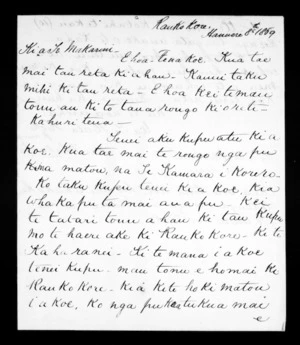 Raukokore.
Hanuere 8th/1869
Ki a Te Makarini.
E hoa. Tena koe. Kua tae
mai tau reta ki ahau. Kanui taku
mihi ki tau reta - E hoa kei te mau
tonu au ki to taua rongo ki o reti-
Kahuri tena -
Tenei aku kupu atu ki a
koe. Kua tae mai te rongo nga pu
kina matou, na Te Kamara i Korero.
Ko taku kupu tenei ki a koe, kia
whakaputa mai ana pu - Kei
te tatari tonu ahau ki tau kupu
mo te haere ake ki Raukokore - Ki te
Kah. ranii - Ki te mana i a koe
tenei kupu. mau tonu e homai ki
Raukokore - Kia kite hoki matou
i a koe, Ko nga pu ka tukua mai
e